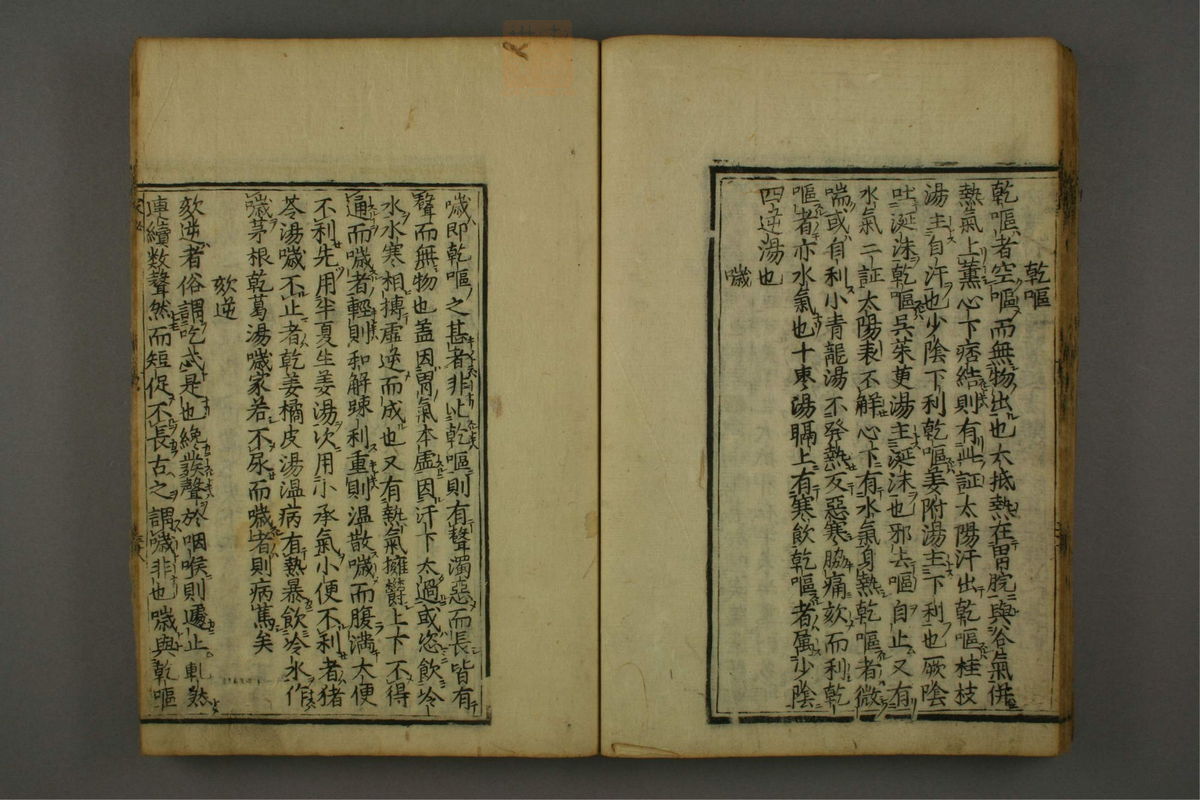 乾嘔
乾嘔者空嘔而無物出也大抵熱在胃脘與谷氣併
熱氣上薫心下痞結則有此証太陽汗出乾嘔桂枝
湯主自汗也少陰下利乾嘔姜附湯主下利也厥陰
吐涎沫乾嘔吳茱萸湯主涎沫也邪去嘔自止又有
水氣二証太陽表不解心下有水氣身熱乾嘔者微
喘或自利小青龍湯不發熱及惡寒脇痛欬而利乾
嘔者亦水氣也十枣湯膈上有寒飲乾嘔者属少陰
四逆湯也
噦
噦即乾嘔之甚者非止乾嘔則有聲濁惡而長皆有
聲而無物也蓋因胃氣本虛因汗下太過或恣飲冷
水水寒相摶虛逆而成也又有熱氣擁欝上下不得
通而噦者輕則和解踈利重則温散噦而腹満大便
不利先用半夏生姜湯次用小承氣小便不利者猪
苓湯噦不止者乾姜橘皮湯温病有熱暴飲冷水作
噦茅根乾葛湯噦家若不尿而噦者則病篤矣
欬逆
欬逆者俗謂吃忒是也纔發聲於咽喉則遽止軋然
連續数聲然而短促不長古之謂噦非也噦與乾嘔